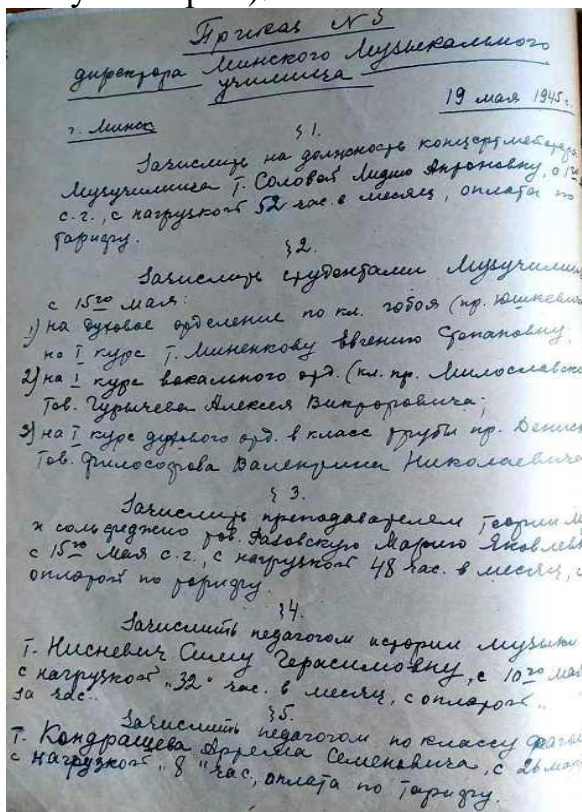 Приказ N 5
директора Минского Музыкального
училища
19 мая 1945 г.
г. Минск
§ 1.
Зачислить на должность концертмейстера
Музучилища т. Соловей Лидию Антоновну, с
с.г., с нагрузкой 52 час. в месяц, оплата по
тарифу.
§ 2.
Зачислить студентами Музучилища
с 15го мая:
1) на духовое отделение по кл. гобоя (пр. Юшкевич
на I курс т. Миненкову Евгению Степановну,
2) на I курс вокального отд. (кл. пр. Милославско
тов. Гурычева Алексея Викторовича;
3) на I курс духового отд. в класс трубы пр. Денис
тов. Философова Валентина Николаевича
§ 3.
Зачислить преподавателем теории м
и сольфеджио тов. Марию Яковлев
с 15го мая с.г., с нагрузкой 48 час. в месяц, с
оплатой по тарифу.
§ 4.
Зачислить педагогом истории музыки
т. Нисневич Симу Герасимовну, с 10го мая
с нагрузкой „32" час. в месяц, с оплатой
за час..
§ 5.
Зачислить педагогом по классу фагот
т. Кондращева Семеновича, с 26 мая
с нагрузкой „8" час, оплата по тарифу.